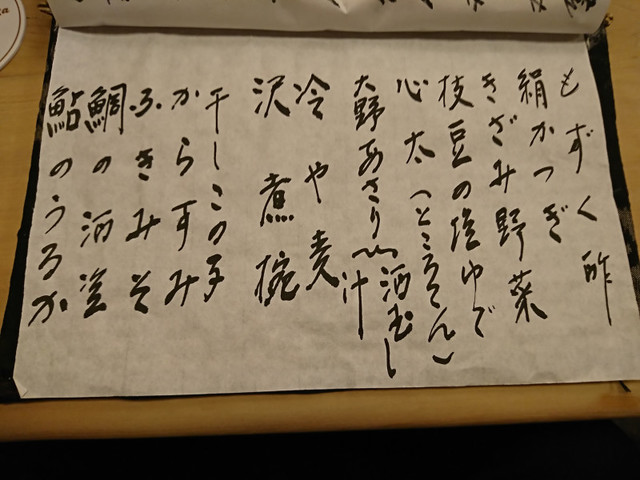 もずく酢
絹かつぎ
きざみ野菜
枝豆の塩ゆで
心太(ところてん)
大野あさり 酒むし
汁
冷や麦
沢煮椀
干しこの子
からすみ
ふきみそ
鯛の酒塗
鮎のうるか